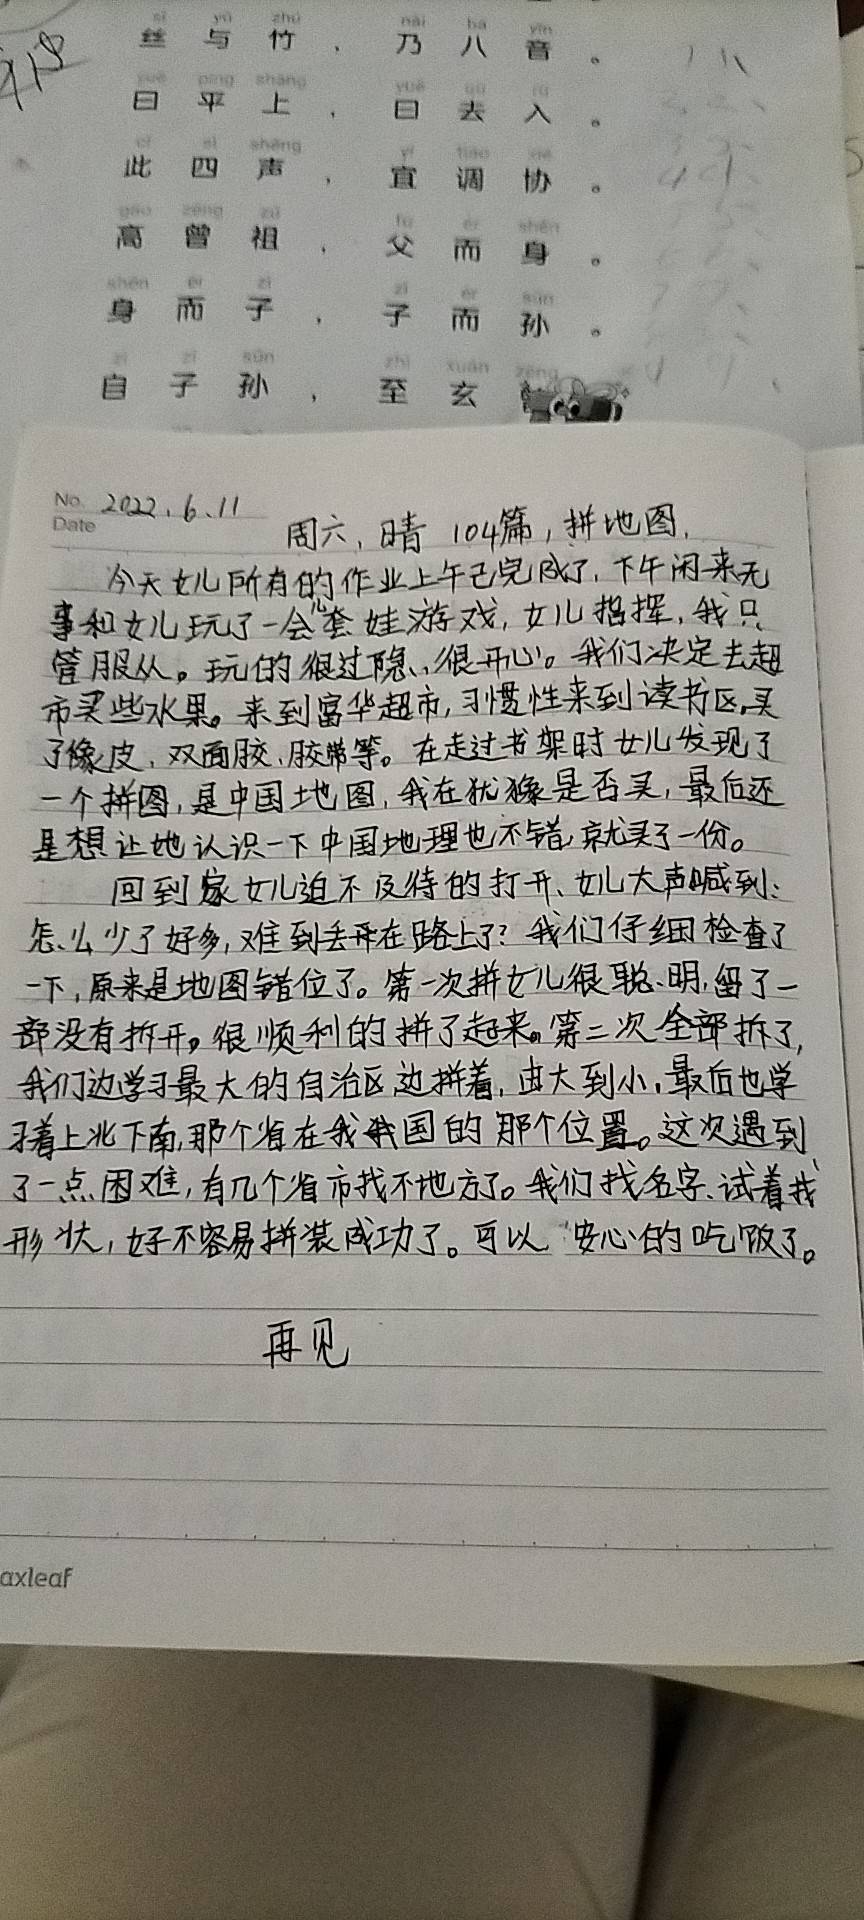 丝与竹，乃八音。
曰平上，曰去入。
此四声，宜调协。
高曾祖，父而身。
身而子，子而孙。
自子孙，至玄
No. 2022.6.11
Date
周六，晴 104篇，拼地图.
今天女儿所有的作业上午已完成了，下午闲来无
事和女儿玩了一会儿套娃游戏，女儿指挥，我只
管服从。玩的很过隐，很开心。我们决定去超
市买些水果。来到富华超市，习惯性来到读书区，买
了像皮、双面胶、胶带等。在走过书架时女儿发现了
一个拼图，是中国地图，我在犹豫是否买，最后还
是想让她认识一下中国地理也不错，就买了一份。
回到家女儿迫不及待的打开、女儿大声喊到：
怎么少了好多，难到丢在路上了？我们仔细检查了
一下，原来是地图错位了。第一次拼女儿很聪明，留了一
部没有拆开。很顺利的拼了起来。第二次全部拆了，
我们边学习最大的自治区边拼着，由大到小，最后也学
习着上北下南，那个省在我国的那个位置。这次遇到
了一点困难，有几个省市找不地方了。我们找名字、试着找
形状，好不容易拼装成功了。可以安心的吃饭了。
再见
axleaf